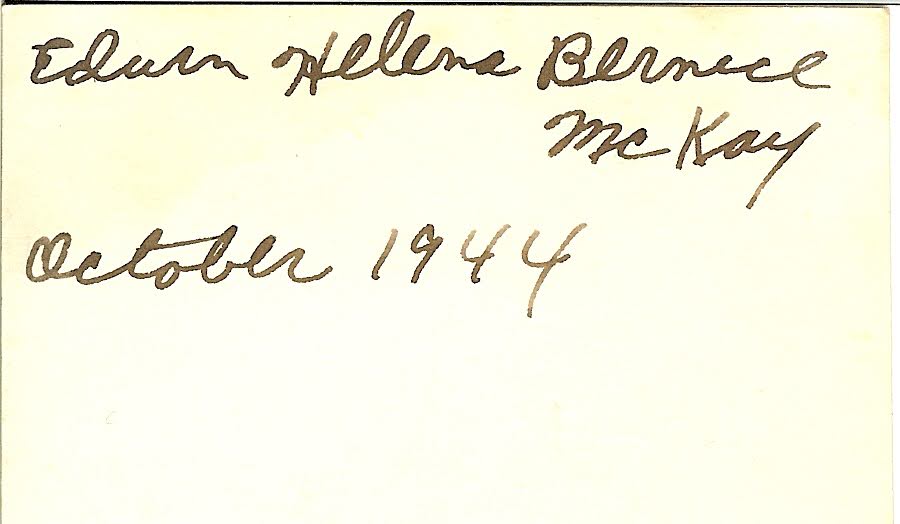 Edwin Helena Bernice
McKay
October 1944